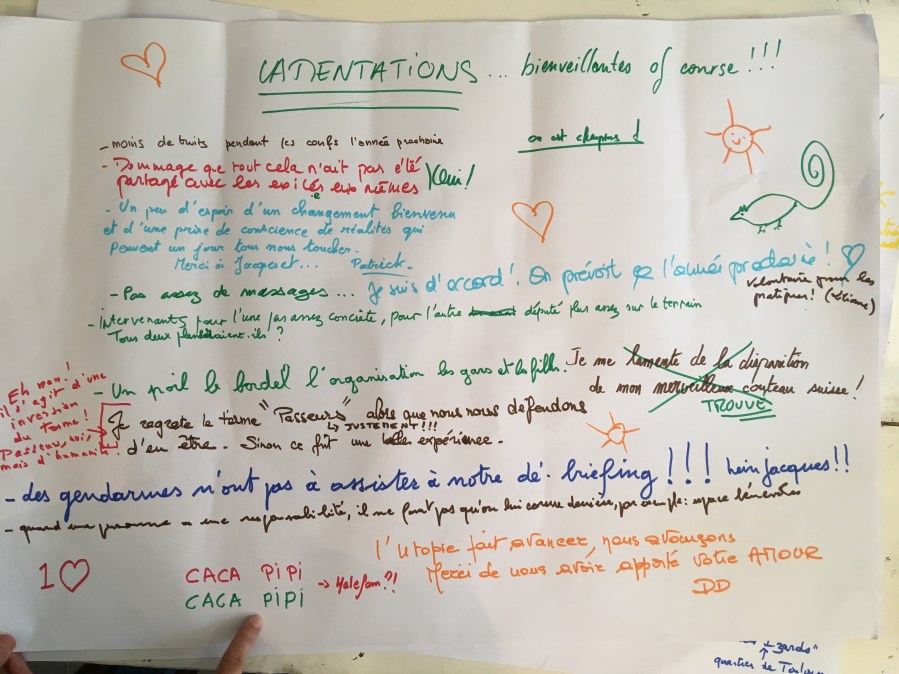 LAMENTATIONS... bienveillantes of course!!!
- moins de bruits pendant les confs l'année prochaine
on est champions!
- Dommage que tout cela n'ait pas été
partagé avec les exilés eux mêmes
Oui!
- Un peu d'espoir d'un changement bienvenu
et d'une prise de conscience de réalités qui
peuvent un jour tous nous toucher.
Merci à Jacques et... Patrick.
Je suis d'accord! On prévoit ça l'année prochaine!
volontaire pour les
pratiquer!
- Pas assez de massages...
- Intervenants pour l'une pas assez concrète, pour l'autre député plus assez sur le terrain
Tous deux ?
- Un poil le bordel l'organisation les gars et les filles.
Je me lamente de la disparition
de mon merveilleux couteau suisse!
TROUVÉ
Eh non!
il s'agit d'une
inversion
du Terme!
Passeur, oui,
mais d'humanité
Je regrette le terme "Passeurs" alors que nous nous défendons
↳ JUSTEMENT!!!
d'en être. Sinon ce fût une belle expérience.
- des gendarmes n'ont pas à assister à notre dé-briefing!!! hein jacques!!
- quand une personne a une responsabilité, il ne faut pas qu'on lui coure derrière, par exple: espace bénévoles
l'Utopie fait avancer, nous avançons
Merci de nous avoir apporté votre AMOUR
DD
1
CACA PiPi
CACA PiPi
→ ?!
zards"
↑
quartier de Toulou